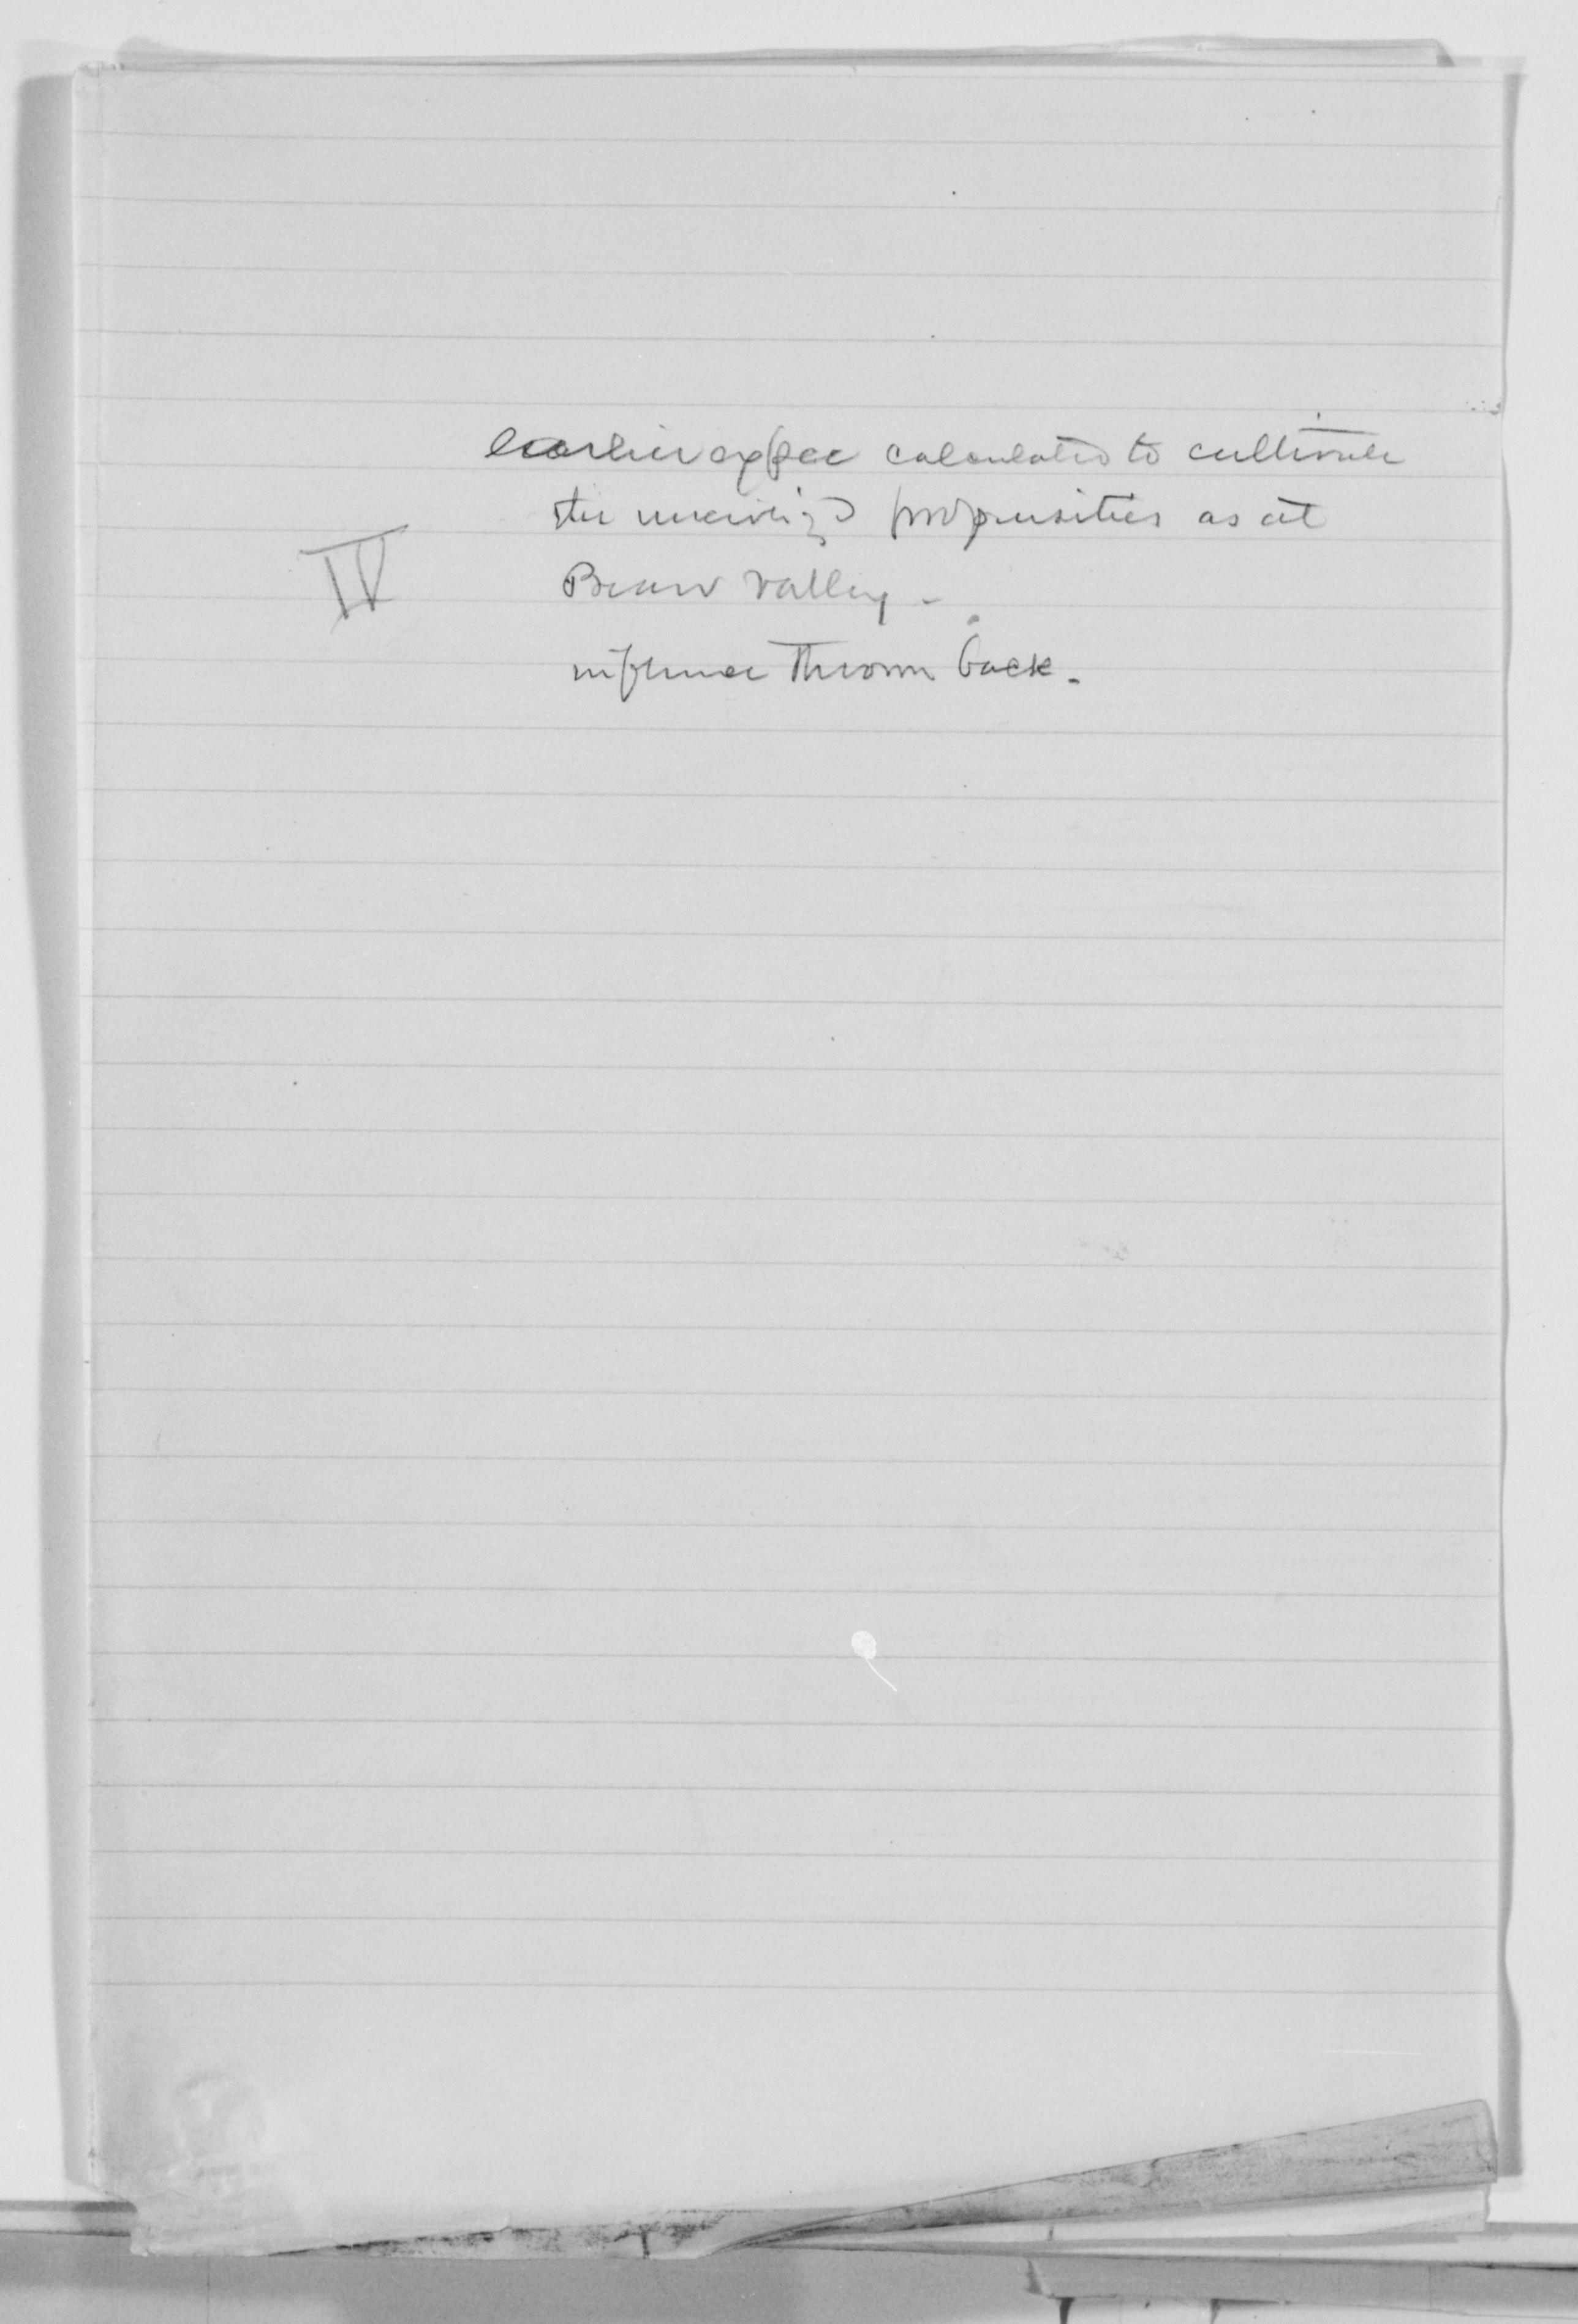 earlier expce calculated to cultivate
the uncivilizd propensities as at
IV
Beaver Valley -
influence thrown back.